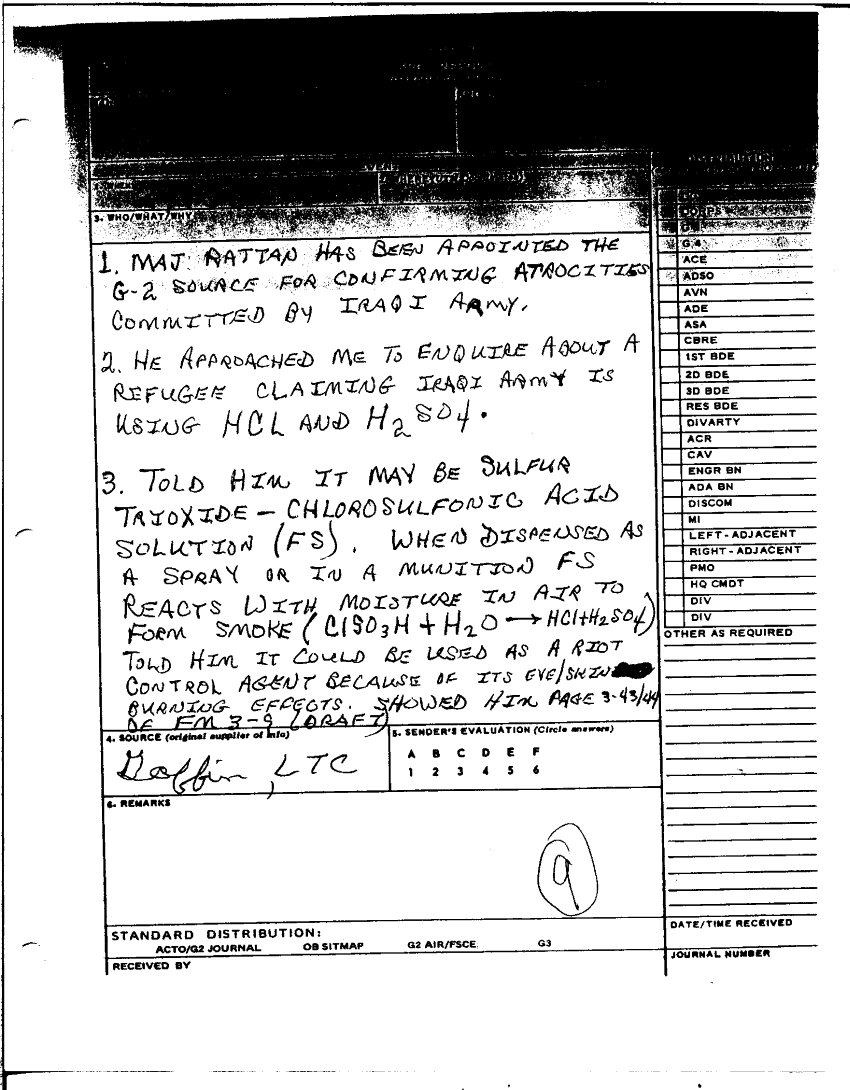 3. WHO/WHAT/WHY
1. MAJ. RATTAN HAS BEEN APPOINTED THE
G-2 SOURCE FOR CONFIRMING ATROCITIES
COMMITTED BY IRAQI ARMY.
2. HE APPROACHED ME TO ENQUIRE ABOUT A
REFUGEE CLAIMING IRAQI ARMY IS
USING HCL AND H2SO4.
3. TOLD HIM IT MAY BE SULFUR
TRIOXIDE - CHLOROSULFONIC ACID
SOLUTION (FS). WHEN DISPENSED AS
A SPRAY OR IN A MUNITION FS
REACTS WITH MOISTURE IN AIR TO
FORM SMOKE (ClSO3H + H2O → HCl+H2SO4)
TOLD HIM IT COULD BE USED AS A RIOT
CONTROL AGENT BECAUSE OF ITS EYE/SKIN
BURNING EFFECTS. SHOWED HIM PAGE 3-43/44
OF FM 3-9 (DRAFT)
4. SOURCE (original supplier of info)
LTC
5. SENDER'S EVALUATION (Circle answers)
A B C D E F
1 2 3 4 5 6
6. REMARKS
9
STANDARD DISTRIBUTION:
ACTO/G2 JOURNAL OB SITMAP G2 AIR/FSCE G3
RECEIVED BY
DISTRIBUTION
CORPS
G4
ACE
ADSO
AVN
ADE
ASA
CBRE
1ST BDE
2D BDE
3D BDE
RES BDE
DIVARTY
ACR
CAV
ENGR BN
ADA BN
DISCOM
MI
LEFT-ADJACENT
RIGHT-ADJACENT
PMO
HQ CMDT
DIV
DIV
OTHER AS REQUIRED
DATE/TIME RECEIVED
JOURNAL NUMBER